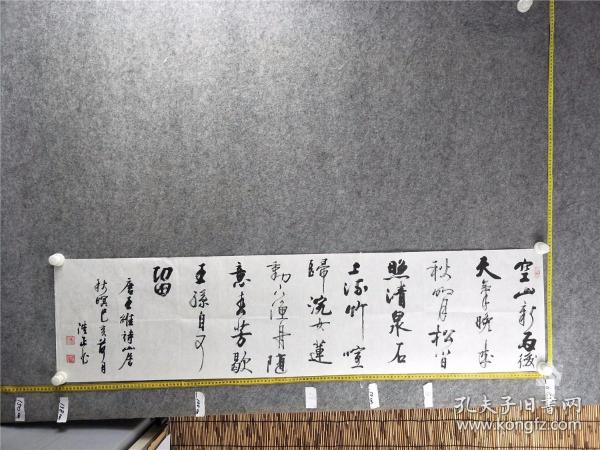 空山新雨後
天氣晚來
秋明月松間
照清泉石
上流竹喧
歸浣女蓮
動下漁舟隨
意春芳歇
王孫自可
留
唐王維詩山居
秋暝己亥月
孔夫子旧书网
www.kongfz.com